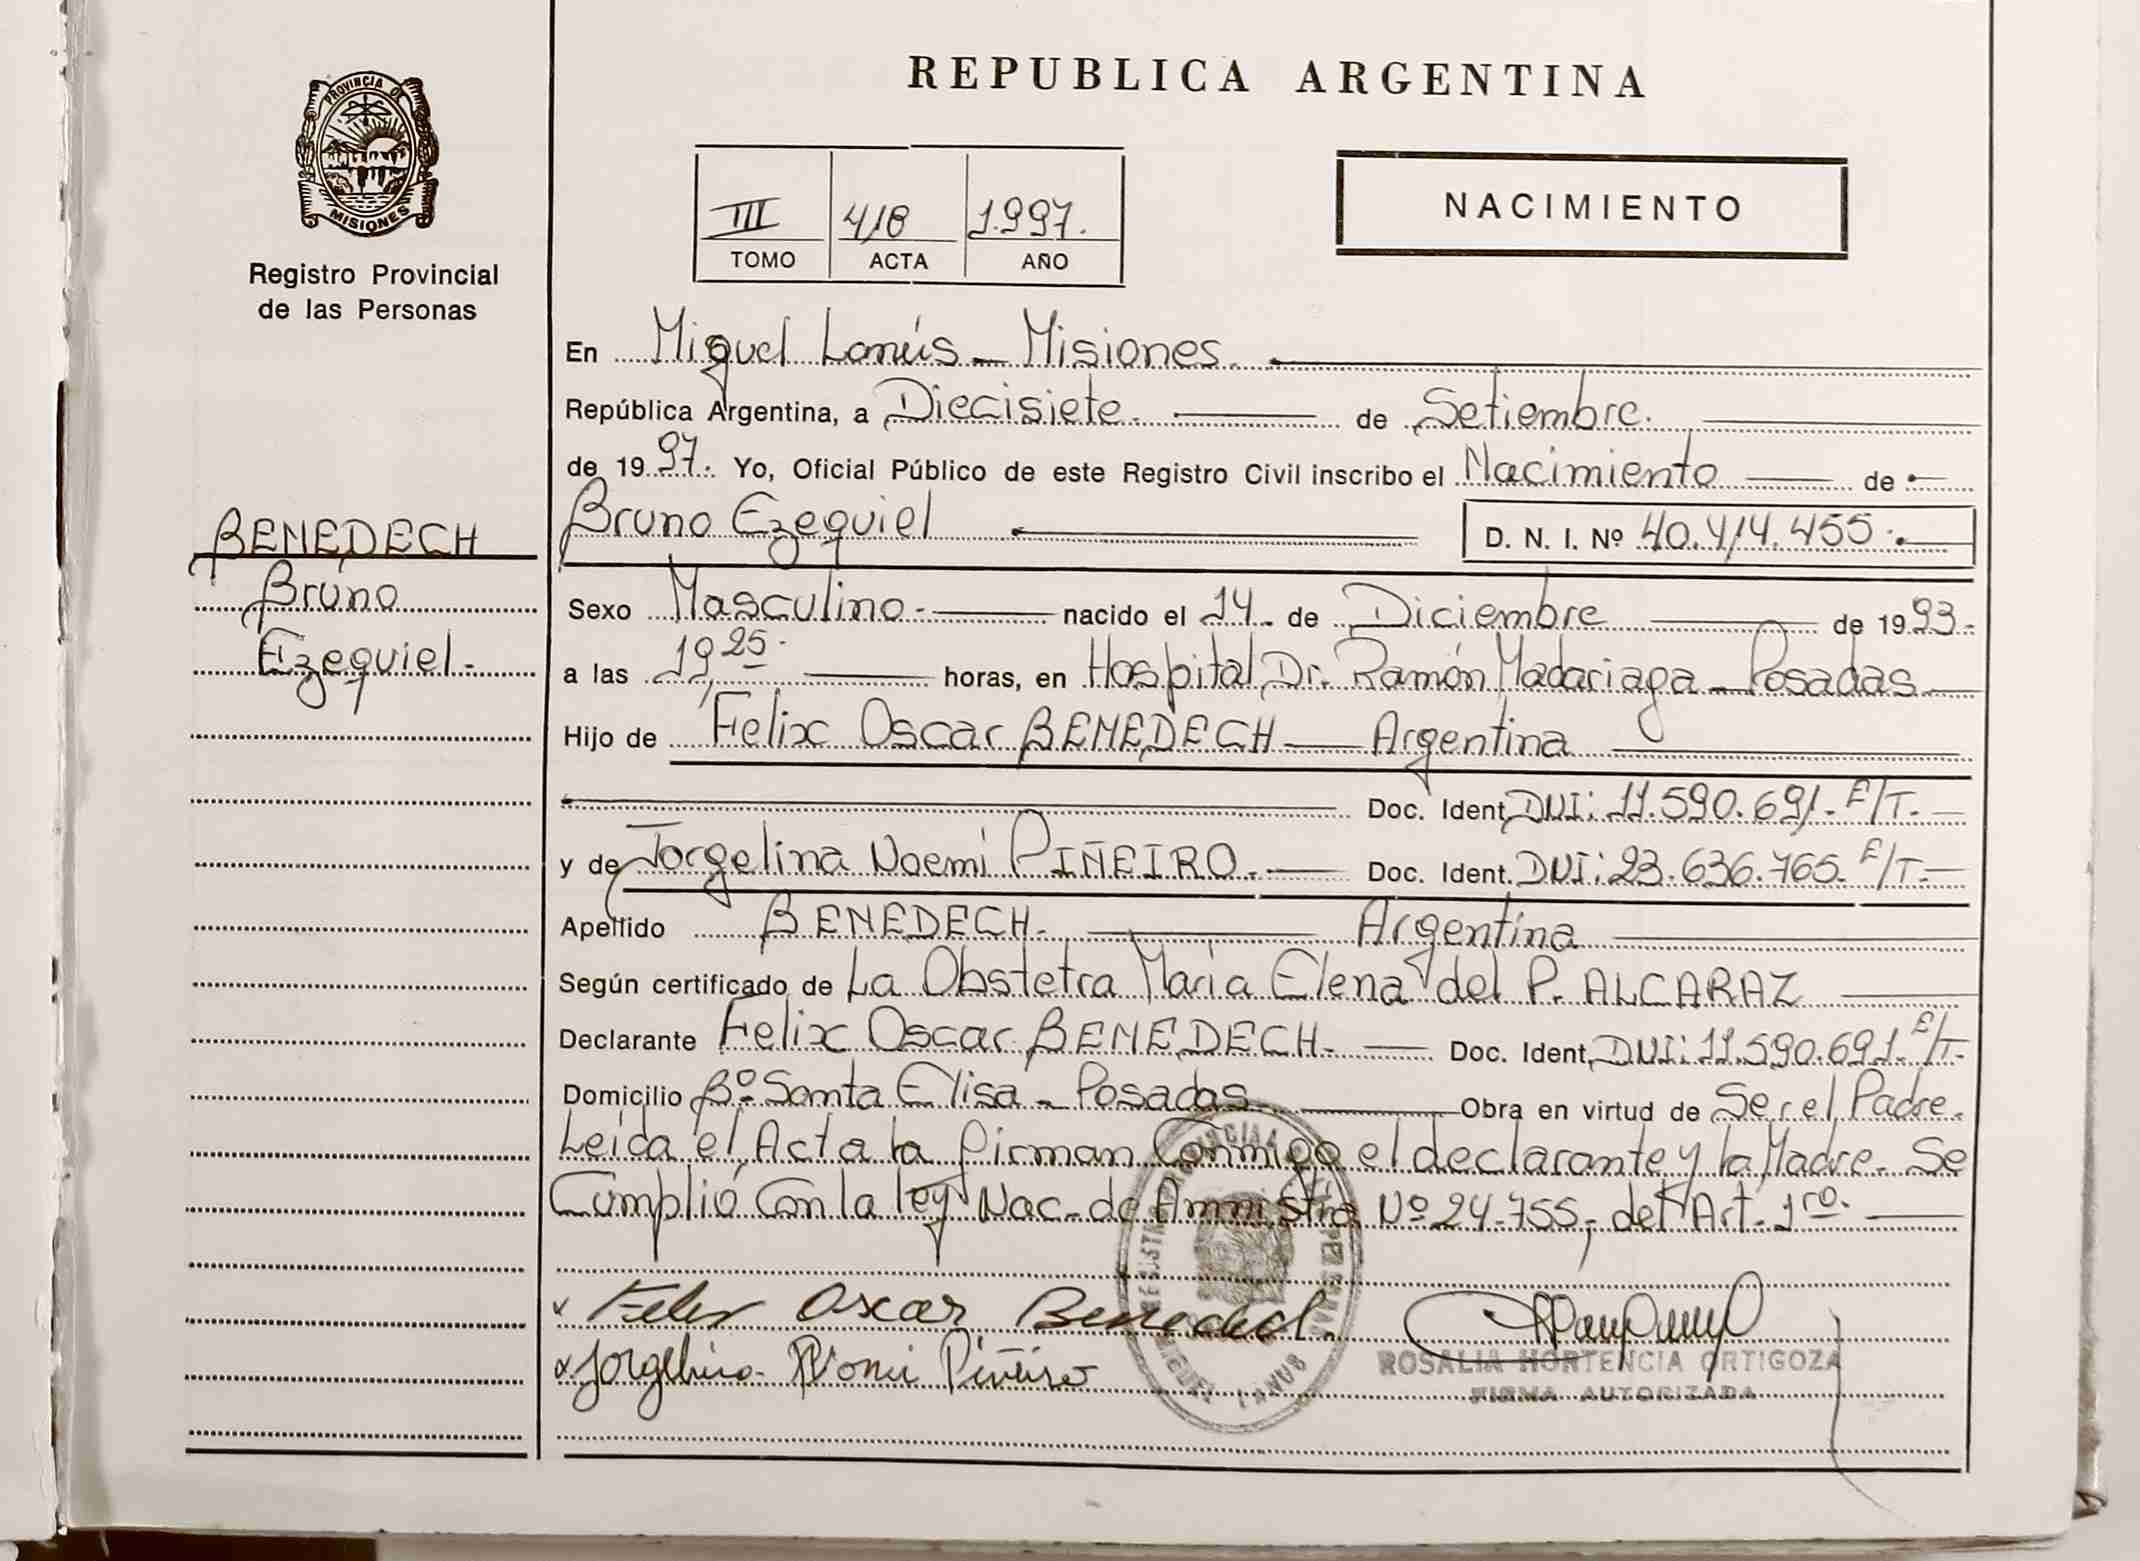 PROVINCIA DE
MISIONES
Registro Provincial
de las Personas
BENEDECH
Bruno
Ezequiel.-
REPUBLICA ARGENTINA
III 418 1.997.
TOMO ACTA AÑO
NACIMIENTO
En Miguel Lanús - Misiones.
República Argentina, a Diecisiete. de Setiembre.
de 1997. Yo, Oficial Público de este Registro Civil inscribo el Nacimiento de
Bruno Ezequiel D. N. I. Nº 40.414.455.
Sexo Masculino.- nacido el 14. de Diciembre de 1993.
a las 19,25. horas, en Hospital Dr. Ramón Madariaga - Posadas
Hijo de Felix Oscar BENEDECH Argentina
Doc. Ident. DNI: 11.590.691. F/T.
y de Jorgelina Noemi PIÑEIRO. Doc. Ident. DNI: 23.636.765. F/T.
Apellido BENEDECH. Argentina
Según certificado de La Obstetra Maria Elena del P. ALCARAZ
Declarante Felix Oscar BENEDECH. Doc. Ident. DNI: 11.590.691. F/T.
Domicilio Bº Santa Elisa - Posadas Obra en virtud de Ser el Padre.
Leida el Acta la firman Conmigo el declarante y la Madre. Se
Cumplió Con la ley Nac. de Amnistia Nº 24.755, del Art. 1ro.
x Felix Oscar Benedech.
x Jorgelina Noemi Piñeiro
MIGUEL LANUS
ROSALIA HORTENCIA ORTIGOZA
FIRMA AUTORIZADA